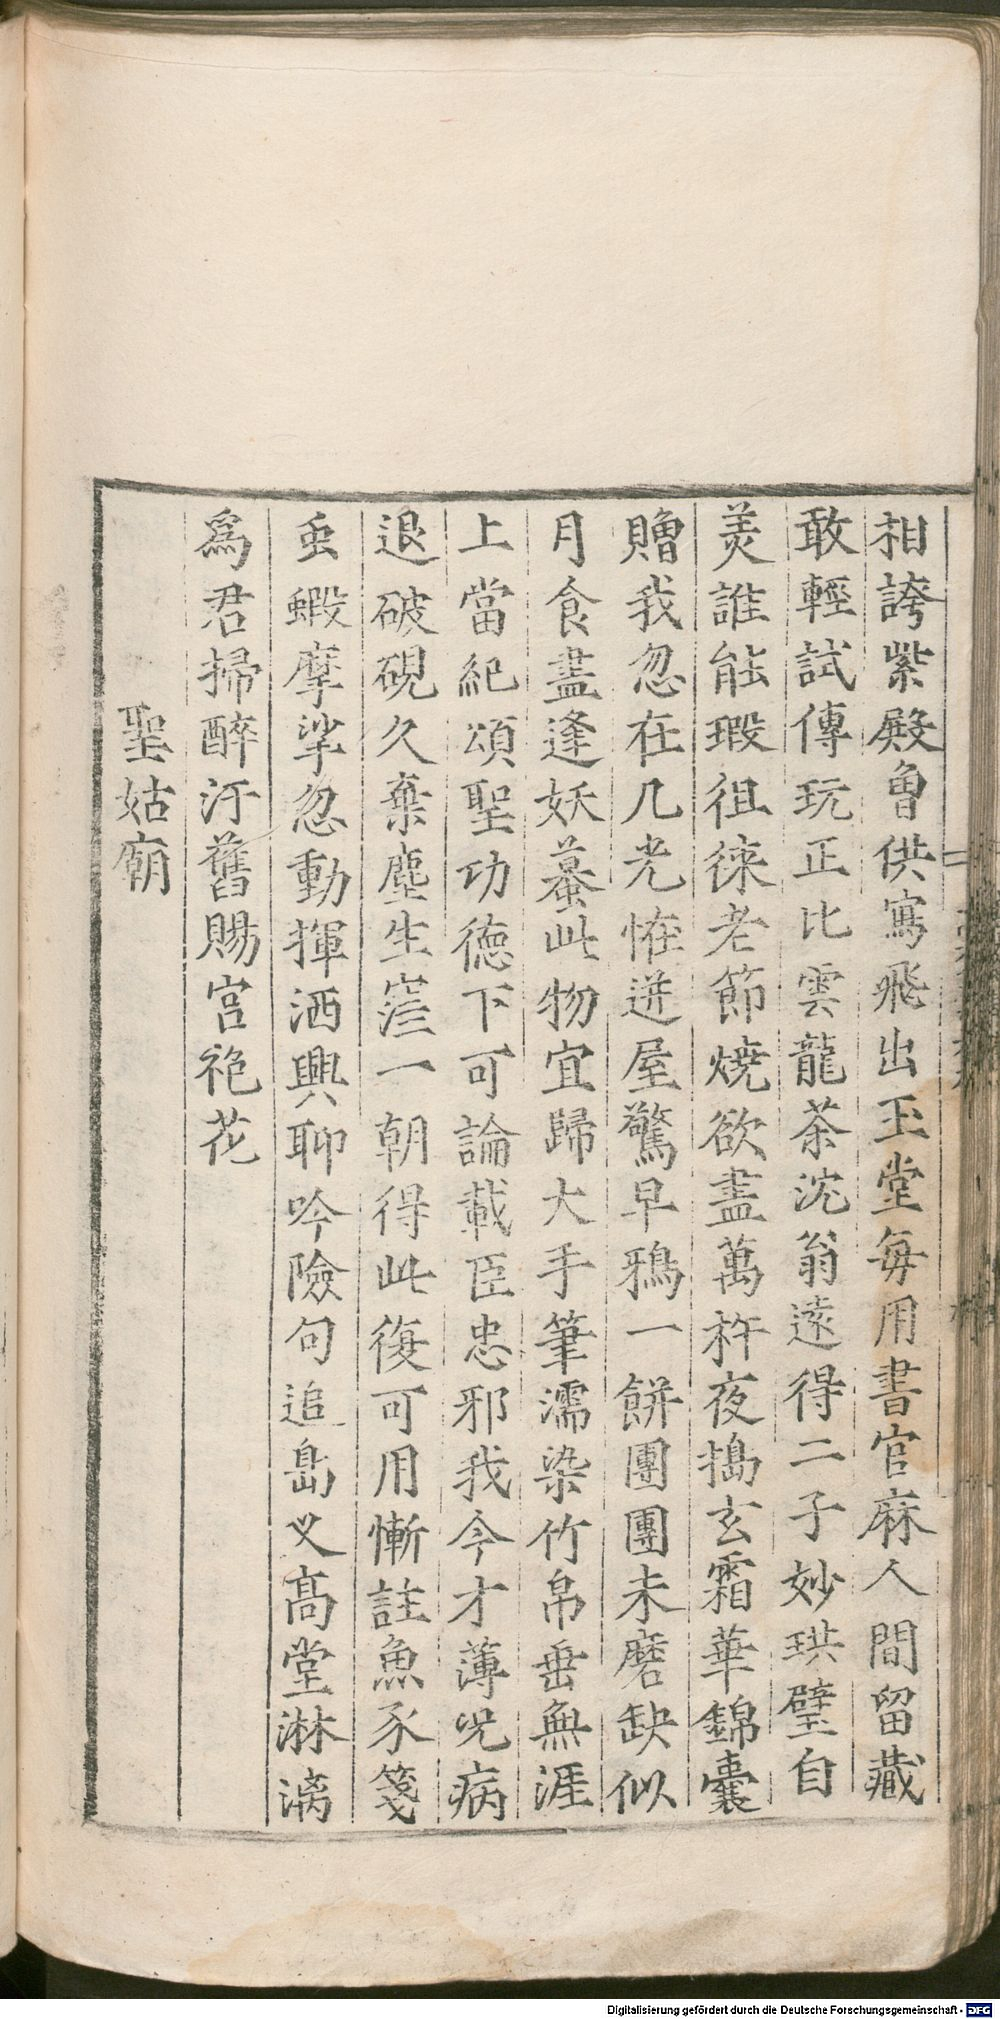 相誇紫殿曾供寫飛出玉堂每用書官麻人間留藏
敢輕試傳玩正比雲龍茶沈翁遠得二子妙珙璧自
羙誰能瑕徂徠老節燒欲盡萬杵夜搗玄霜華錦囊
贈我忽在几光恠迸屋驚早鴉一餅團團未磨缺似
月食盡逢妖蟇此物宜歸大手筆濡染竹帛垂無涯
上當紀頌聖功德下可論載臣忠邪我今才薄况病
退破硯久棄塵生窪一朝得此復可用慚註魚豕箋
䖝蝦摩挲忽動揮洒興聊吟險句追島叉高堂淋漓
為君掃醉汙舊賜宮袍花
聖姑廟
Digitalisierung gefördert durch die Deutsche Forschungsgemeinschaft - DFG